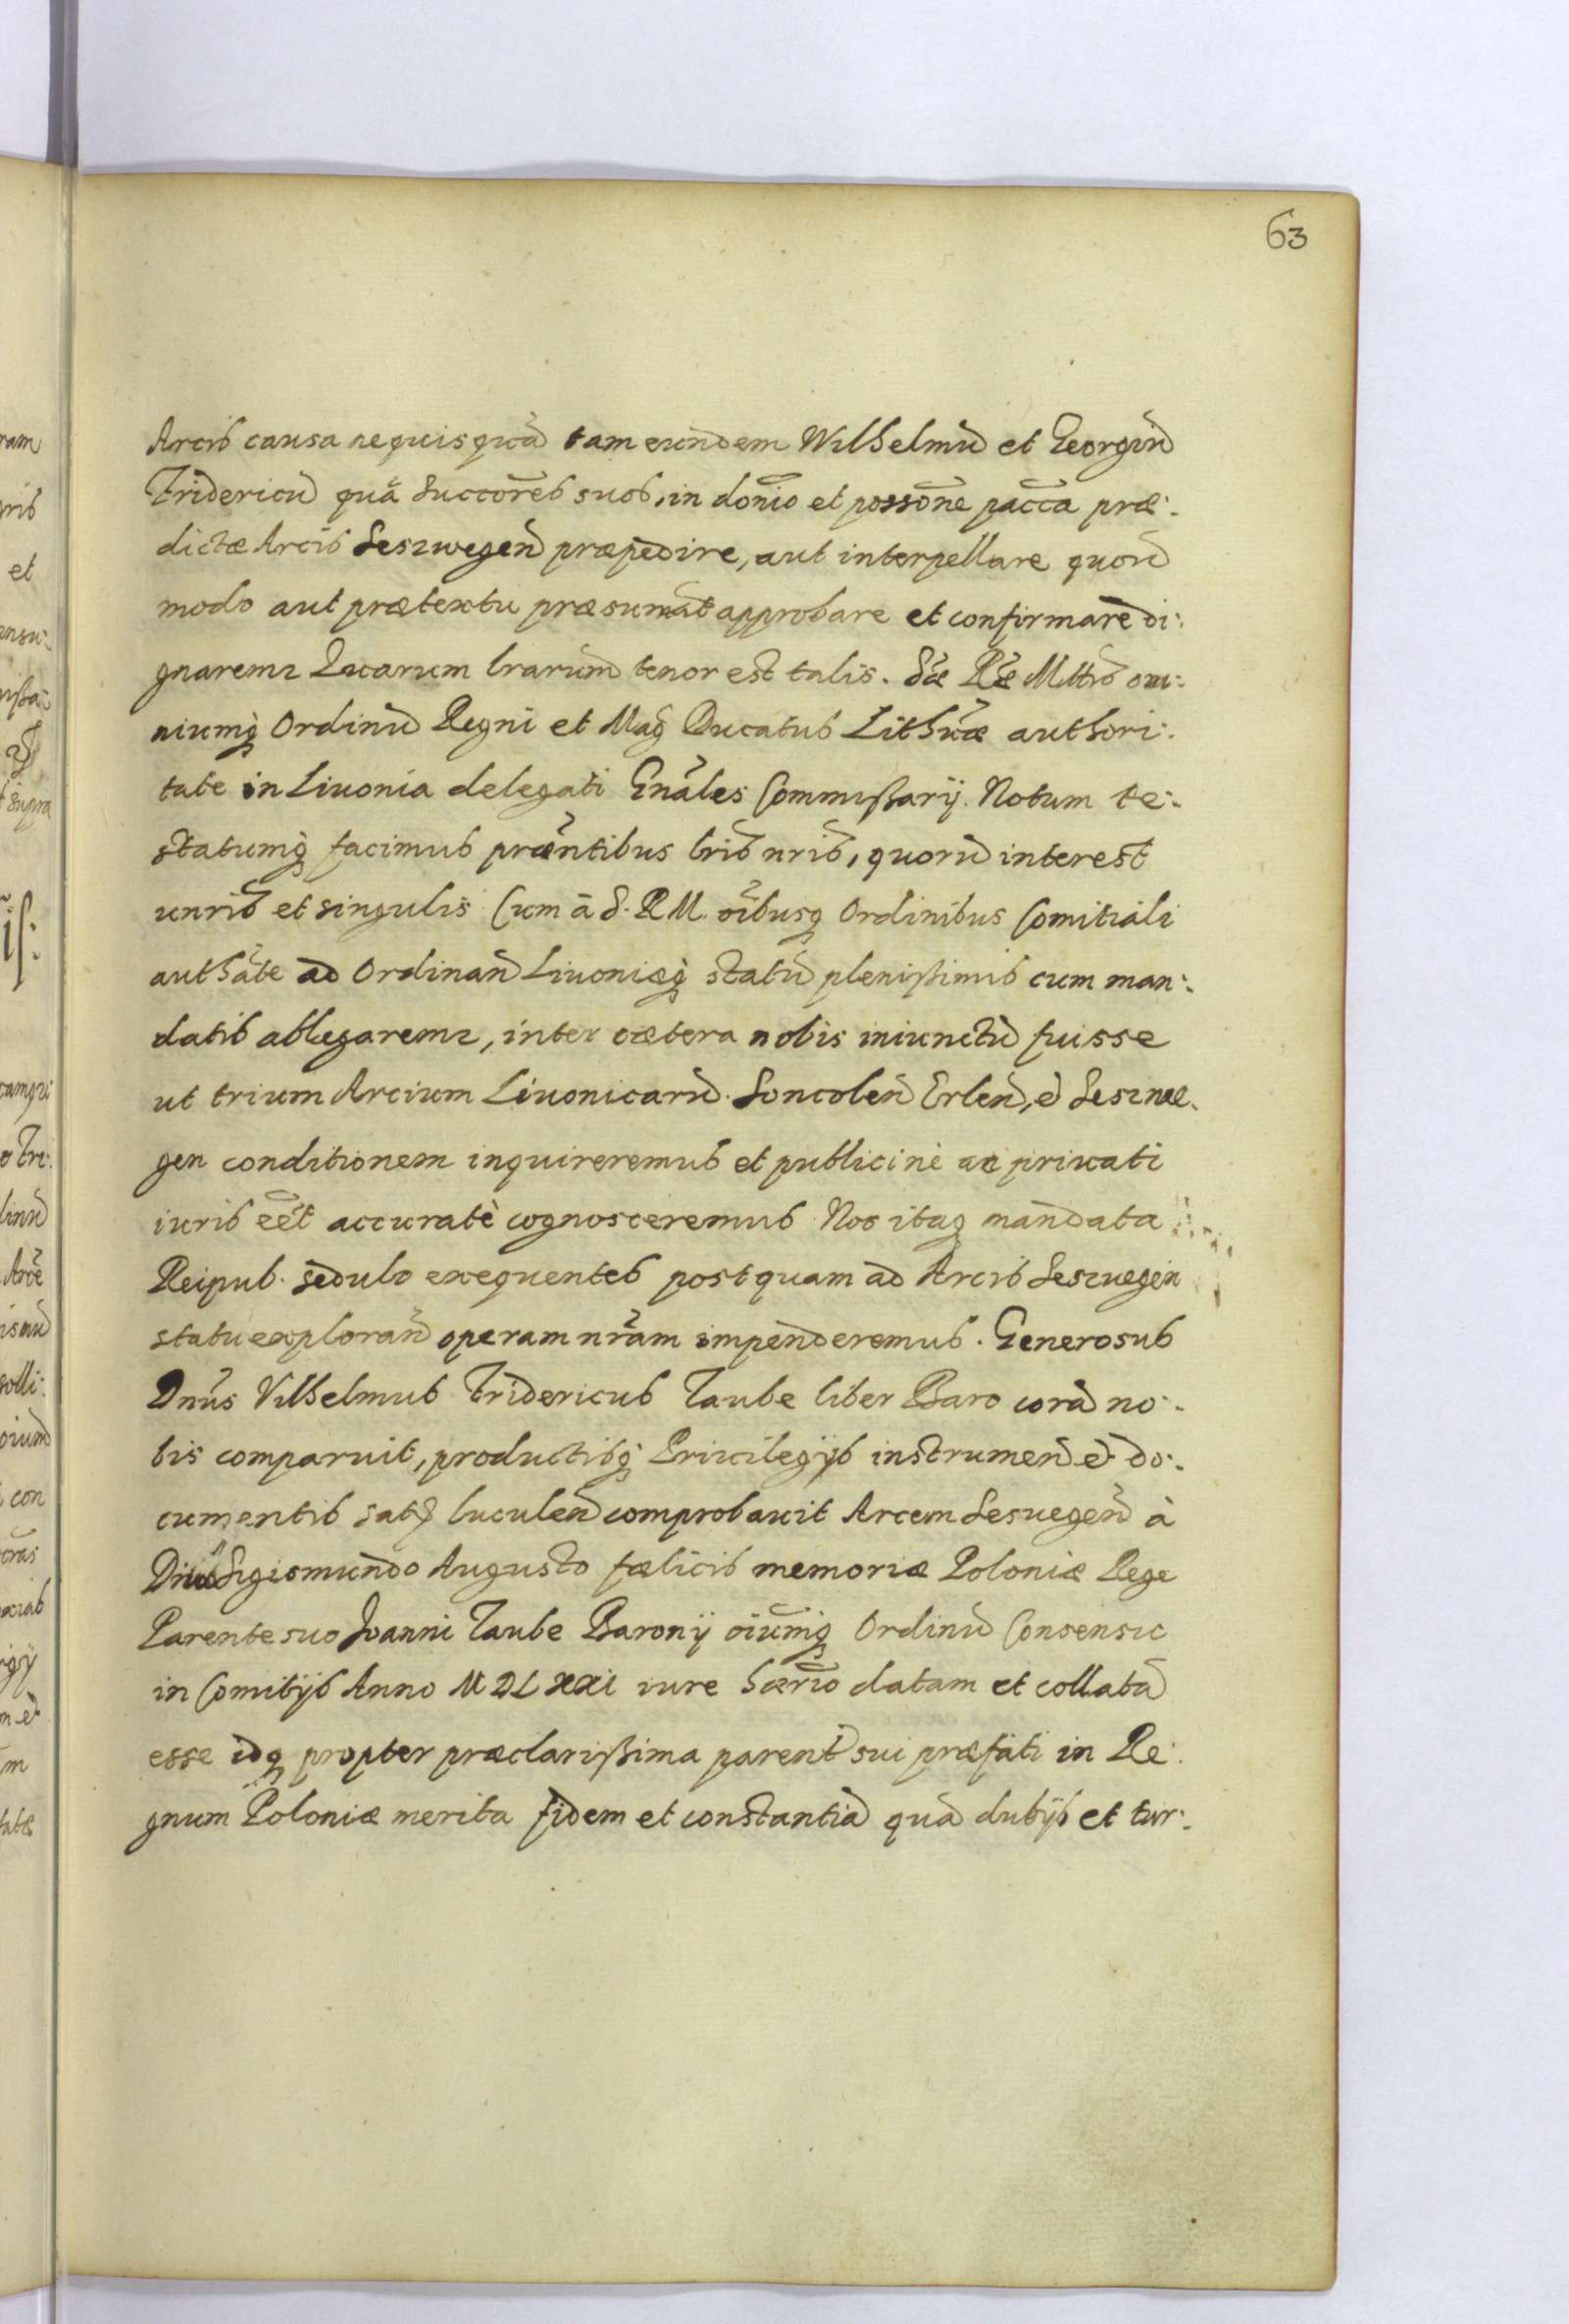 63
Arcis causa nequisquã tam eundem Wilhelmũ et Georgiũ
Fridericũ quã Succõres suos, in donĩo et possõne pacc̃a præ:
dictæ Arcis Seszwegeñ præpedire, aut interpellare quoũ
modo aut prætextu præsumãt approbare et confirmare di:
gnaremr Quarum lrarum̃ tenor est talis. Sæ̃ Ræ̃ Mttis om:
niumq̃ Ordinũ Regni et Mag̃ Ducatus Lithũæ authori:
tate in Liuonia delegati Gnãles Commißarij. Notum te:
statumq̃ facimus præñtibus lris̃ nris̃, quorũ interest
unris̃ et singulis Cum ā S. R M. oĩbusq Ordinibus Comitiali
authãte ad Ordinañ Liuoniæq̃ statũ plenißimis cum man:
datis ablegaremr, inter cætera nobis iniunctũ fuisse
ut trium Arcium Liuonicarũ. Soncoleñ Erleñ, et Seszwe.
gen conditionem inquireremus et publicine an priuati
iuris eẽt accuratè cognosceremus Nos itaq mandata
Reipub. sedulo exequentes postquam ad Arcis Seszuegen
statu exploran̄ operam nr̃am impenderemus. Generosus
Dnũs Vilhelmus Fridericus Taube liber Baro corã no:
bis comparuit, productisq̃ Priuilegijs instrumeñ et do:
cumentis satq̃ luculeñ comprobauit Arcem Sesuegeñ à
Diuo Sigismundo Augusto fælicis memoriæ Poloniæ Rege
Parente suo Joanni Taube Baronij oĩumq̃ Ordinũ Consensu
in Comitijs Anno M D L XXI iure hærĩo datam et collatã
esse idq propter præclarißima parent̃ sui præfati in Re:
gnum Poloniæ merita fidem et constantiã quã dubijs et tur: